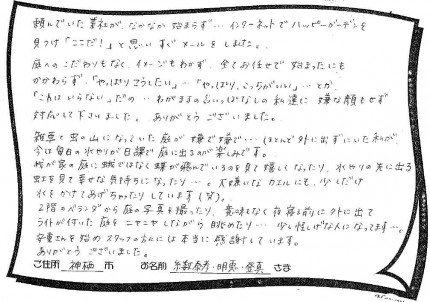 頼んでいた業社が、なかなか始まらず…インターネットでハッピーガーデンを
見つけ「ここだ!」と思い すぐ メールをしました。
庭へのこだわりもなく、イメージもわかず、全てお任せで 始まったにも
かかわらず、「やっぱりこうしたい」…「やっぱり、こっちがいい」…とか
「これはいらない」だの… わがままの言いっぱなしの私達に 嫌な顔もせず
対応して下さいました。ありがとうございました。
雑草と虫の山になっていた庭が 嫌で嫌で… ほとんど外に出ずにいた私が、
今は毎日の水やりが日課で庭に出るのが楽しみです。
我が家の庭に蛾ではなく蝶が飛んでいるのを見て嬉しくなったり、水やりの先に出る
虹を見て幸せな気持ちになったり…と 大嫌いなカエルにも、少しだけ
水をかけてあげちゃったりしています(笑)。
2階のベランダから庭の写真を撮ったり、意味もなく夜寝る前に外に出て
ライトが付いた庭をニヤニヤしながら眺めたり… 少し怪しげな人になってます…
安重さんを始めスタッフの方には本当に感謝しています。
ありがとうございました。
ご住所 神栖 市 お名前 糸数 さま